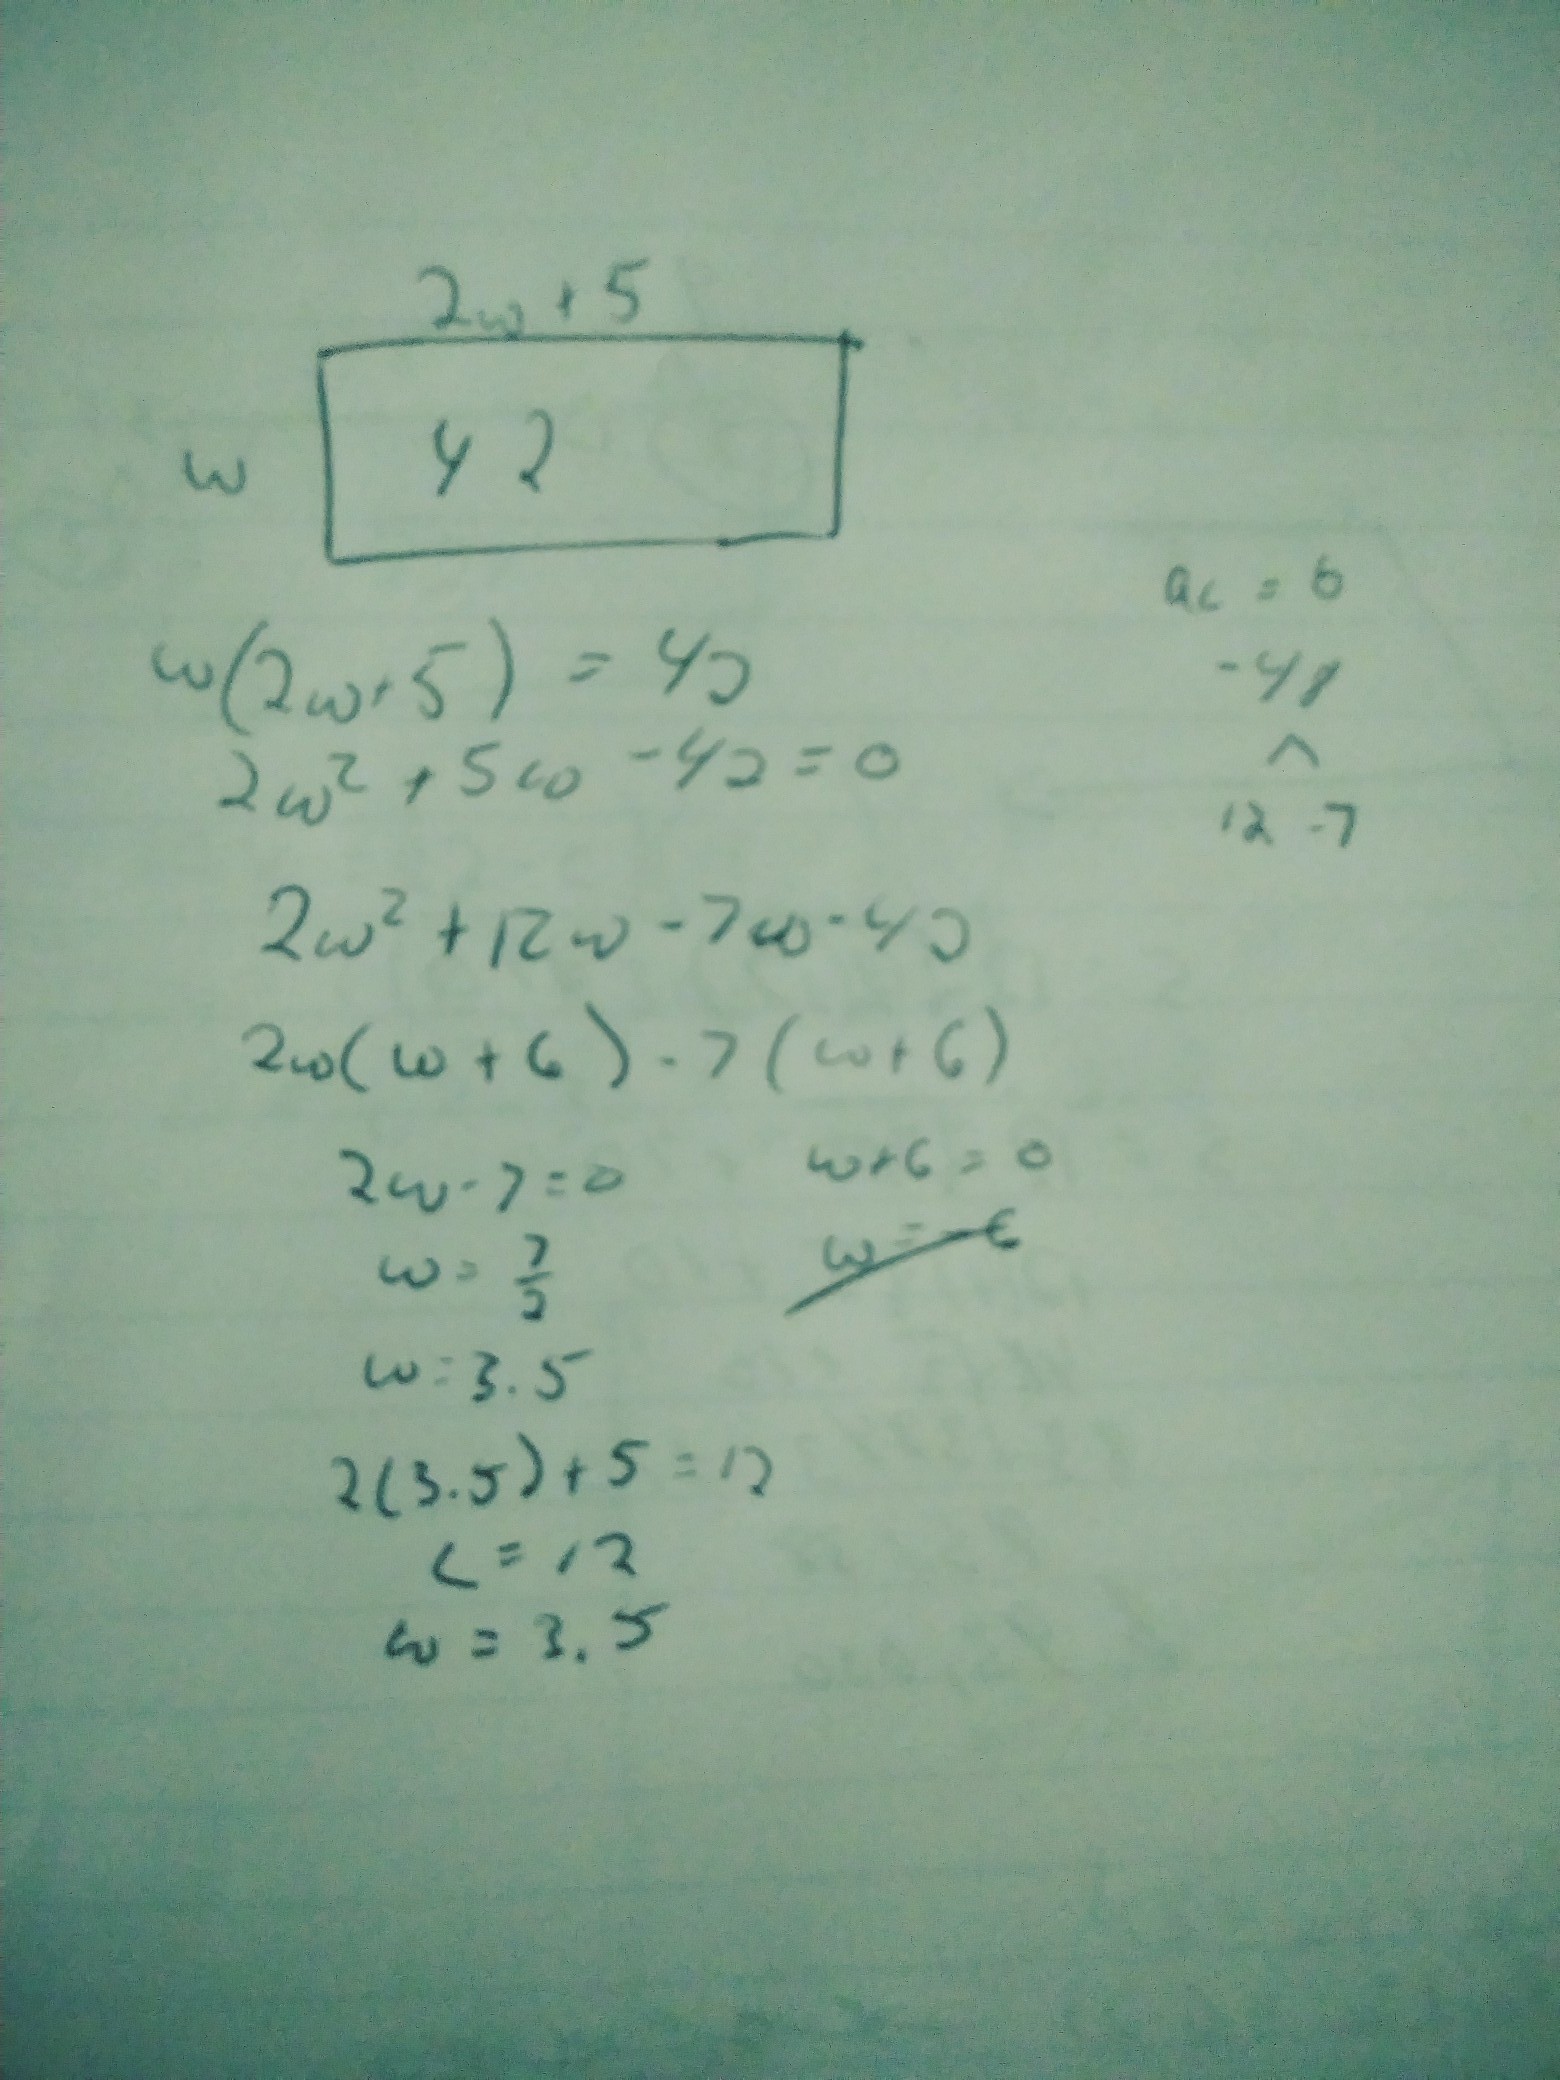 2w + 5
w
42
w(2w+5) = 42
2w² + 5w - 42 = 0
ac = b
-48
^
12 -7
2w² + 12w - 7w - 42
2w(w + 6) - 7(w+6)
2w - 7 = 0
w+6 = 0
w = 7/2
w = -6
w = 3.5
2(3.5) + 5 = 12
L = 12
w = 3.5